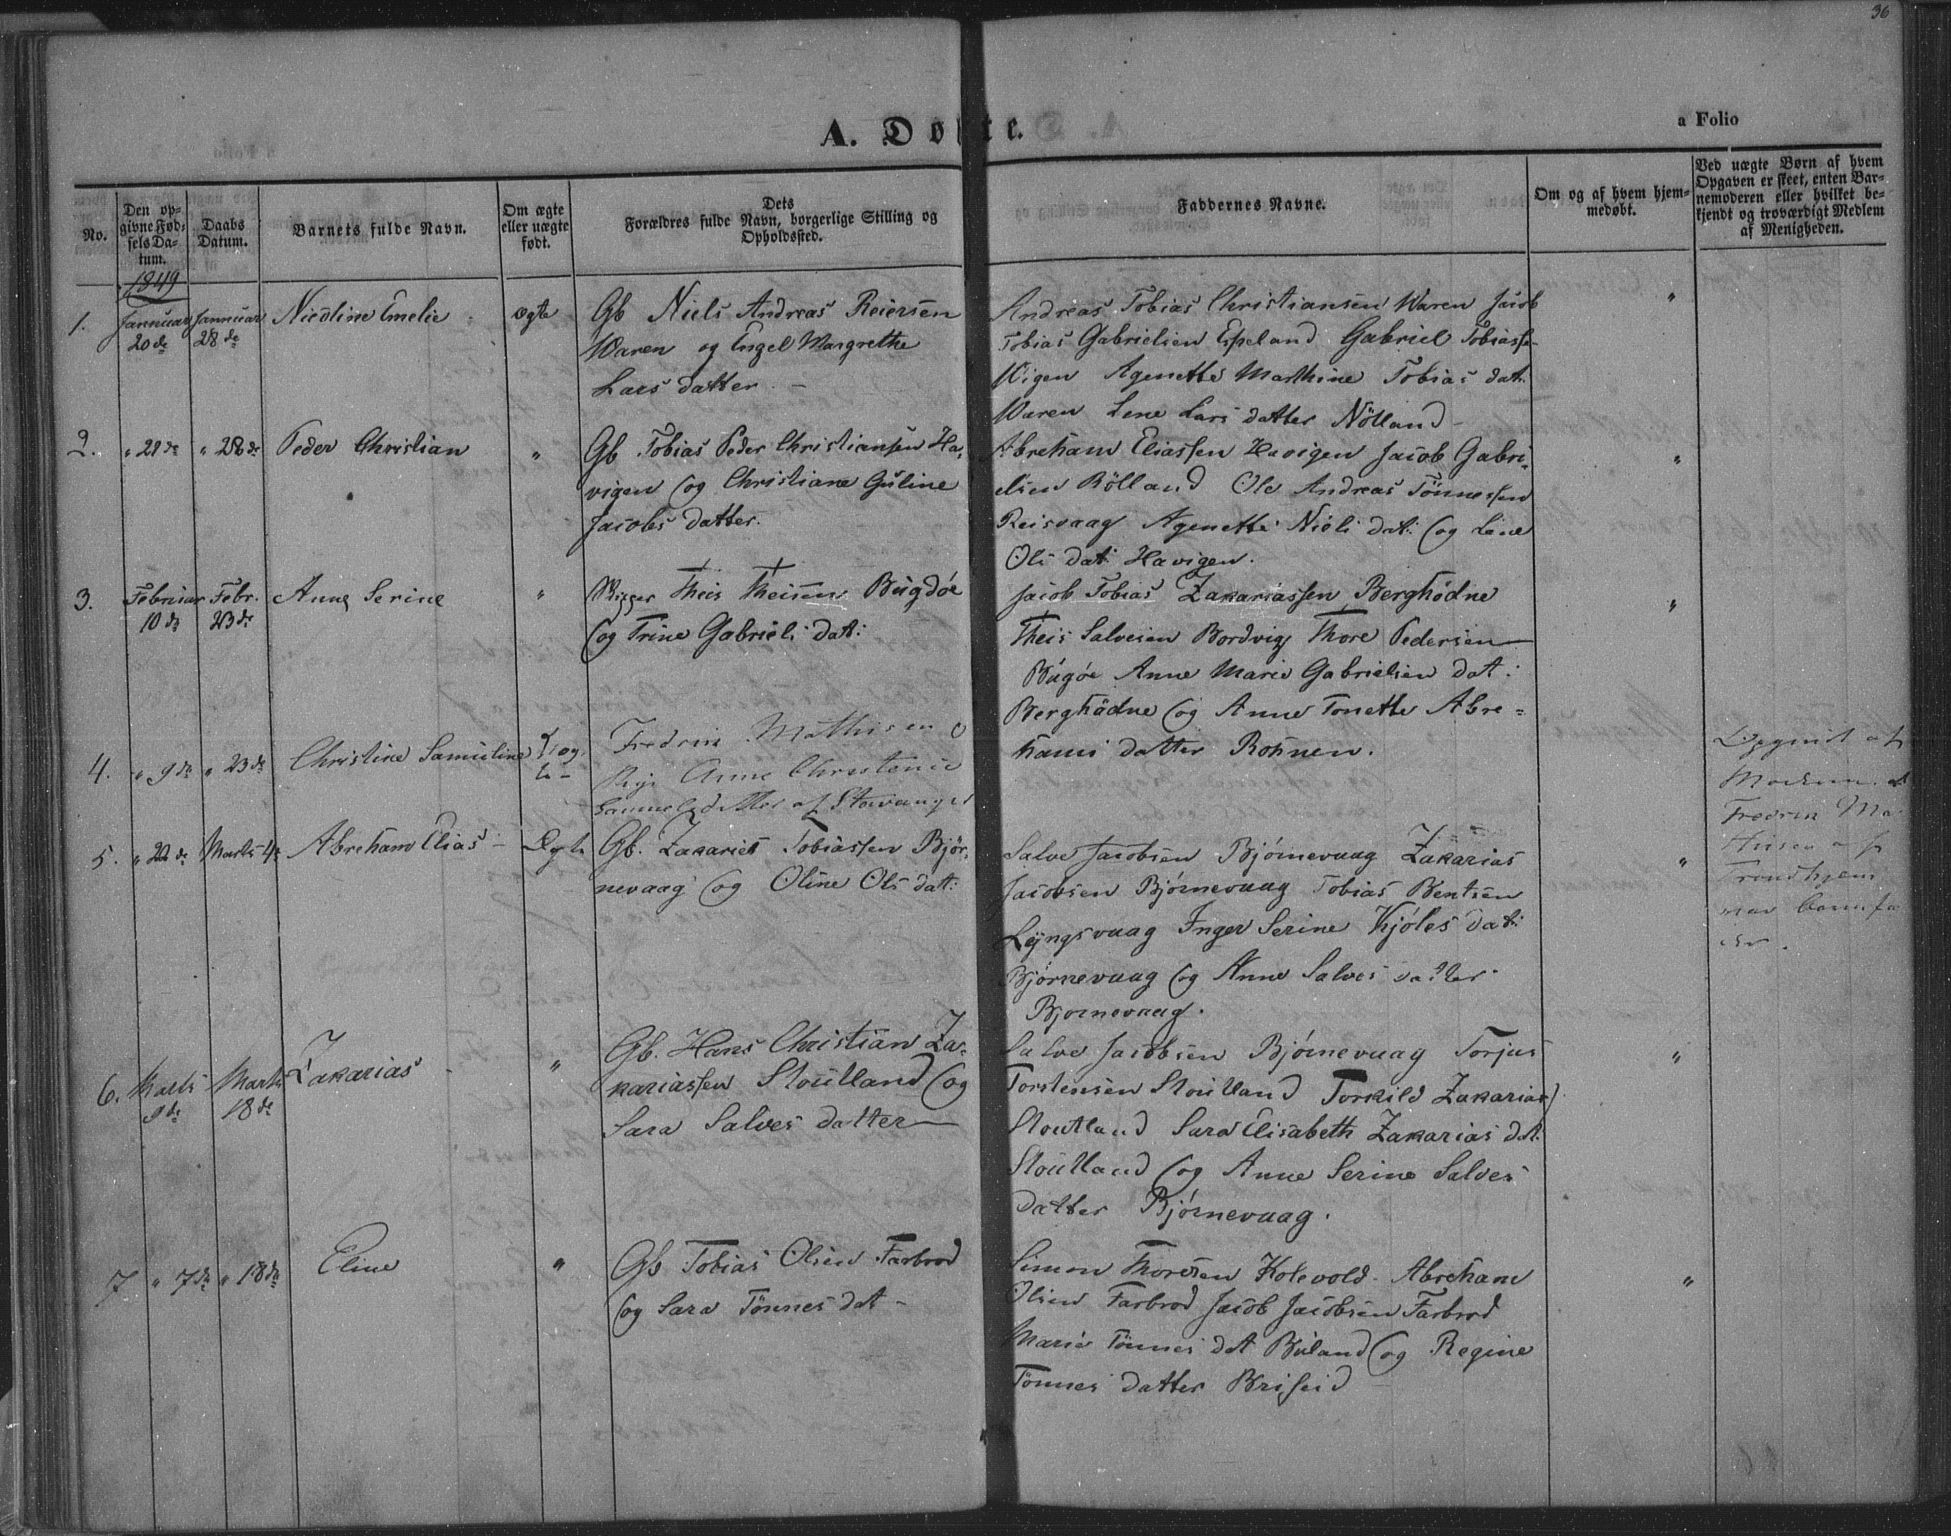 36
A. Døbte.
a Folio
No.
Den opgivne Fødsels Datum.
Daabs Datum.
Barnets fulde Navn.
Om ægte eller uægte født.
Dets Forældres fulde Navn, borgerlige Stilling og Opholdssted.
Faddernes Navne.
Om og af hvem hjemmedøbt.
Ved uægte Børn af hvem Opgaven er skeet, enten Barnemoderen eller hvilket bekjendt og troværdigt Medlem af Menigheden.
1849
1. Januar 20de Januar 28de Nicoline Emelie ægte
Gb Niels Andreas Reiersen
Waren og Engel Margrethe
Lars datter. –
Andreas Tobias Christiansen Waren Jacob
Tobias Gabrielsen Espeland Gabriel Tobiasse-
Vigen Agenette Marthine Tobias dat.
Waren Lene Lars datter Nölland –
"
2. " 21de " 28de Peder Christian "
Gb Tobias Peder Christiansen Ha-
vigen og Christiane Guline
Jacobs datter.
Abreham Eliassen Havigen Jacob Gabri-
elsen Rölland Ole Andreas Tönnessen
Reisvaag Agenette Niels dat: og Line
Ols dat Havigen.
"
3. Februar 10de Febr. 23de Anne Serine "
Theis Theisen Bugdöe
og Trine Gabriels dat:
Jacob Tobias Zakariassen Berghödne
Theis Salvesen Bordvig Thore Pedersen
Bugöe Anne Marie Gabrielsen dat:
Berghödne og Anne Tonette Abre=
hams datter Rohnen.
"
4. " 9de " 23de Christine Samuline
Fredrin Mathisen
Pige Anne Christenie
Samuelsdatter af Stavanger
Opgivet af
Moderen. at
Fredrin Ma
thisen af
Trondhjem
var Barnefa
der.
5. " 22de Marts 4de Abreham Elias – Ægte
Gb. Zakarias Tobiassen Bjør-
nevaag og Oline Ols dat:
Salve Jacobsen Bjørnevaag Zakarias
Jacobsen Bjørnevaag Tobias Bentsen
Lyngsvaag Inger Serine Kjöles dat:
Bjørnevaag og Anne Salves datter
Bjørnevaag.
"
6. Marts 9de Marts 18de Zakarias "
Gb. Hans Christian Za-
kariassen Stoutland og
Sara Salves datter
Salve Jacobsen Bjørnevaag Torjus
Torstensen Stoutland Torkild Zakarias
Stoutland Sara Elisabeth Zakarias dat.
Stoutland og Anne Serine Salves
datter Bjørnevaag.
"
7 " 7de " 18de Eline "
Gb Tobias Olsen Farbrod
og Sara Tönnes dat –
Simon Thorsen Kolevold. Abreham
Olsen Farbrod Jacob Jacobsen Farbrod
Marie Tönnes dat Buland og Regine
Tönnes datter Briseid
"